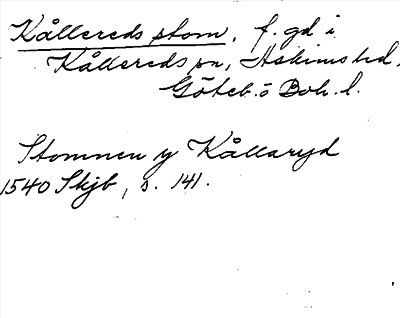 Kållereds stom, f. gd i
Kållereds sn, Askims hd,
Göteb. o Boh. l.
Stomnen y Kållaryd
1540 Skjb, s. 141.